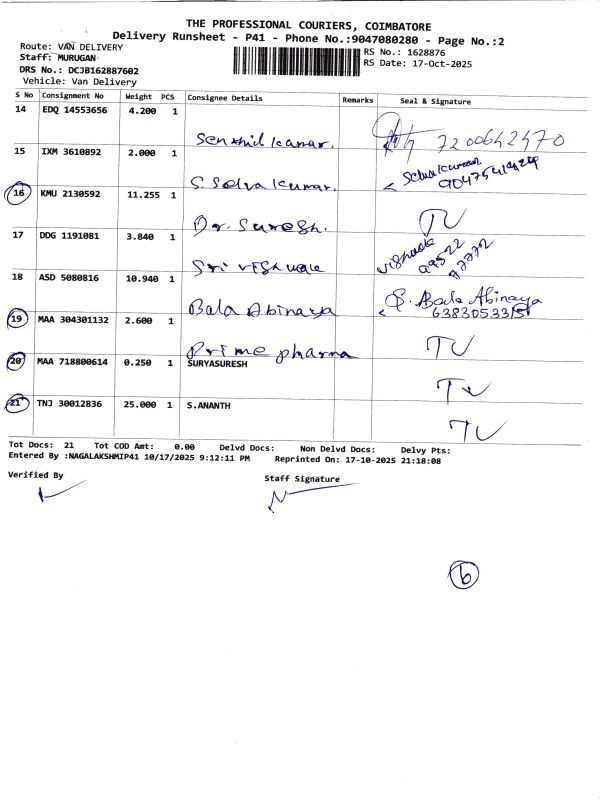 THE PROFESSIONAL COURIERS, COIMBATORE
Delivery Runsheet - P41 - Phone No.:9047080280 - Page No.:2
Route: VAN DELIVERY
RS No.: 1628876
Staff: MURUGAN
RS Date: 17-Oct-2025
DRS No.: DCJB162887602
Vehicle: Van Delivery
S No Consignment No Weight PCS Consignee Details Remarks Seal & Signature
14 EDQ 14553656 4.200 1
Senthil kumar. 7200642470
15 IXM 3610892 2.000 1
S. Selva kumar.
16 KMU 2130592 11.255 1
Dr. Suresh. TV
17 DDG 1191081 3.840 1
Sri vishwale
18 ASD 5080816 10.940 1
Bala Abinaya S. Bala Abinaya
19 MAA 304301132 2.600 1
Prime pharma TV
20 MAA 718800614 0.250 1 SURYASURESH
TV
21 TNJ 30012836 25.000 1 S.ANANTH
TV
Tot Docs: 21 Tot COD Amt: 0.00 Delvd Docs: Non Delvd Docs: Delvy Pts:
Entered By :NAGALAKSHMIP41 10/17/2025 9:12:11 PM Reprinted On: 17-10-2025 21:18:08
Verified By
Staff Signature
6